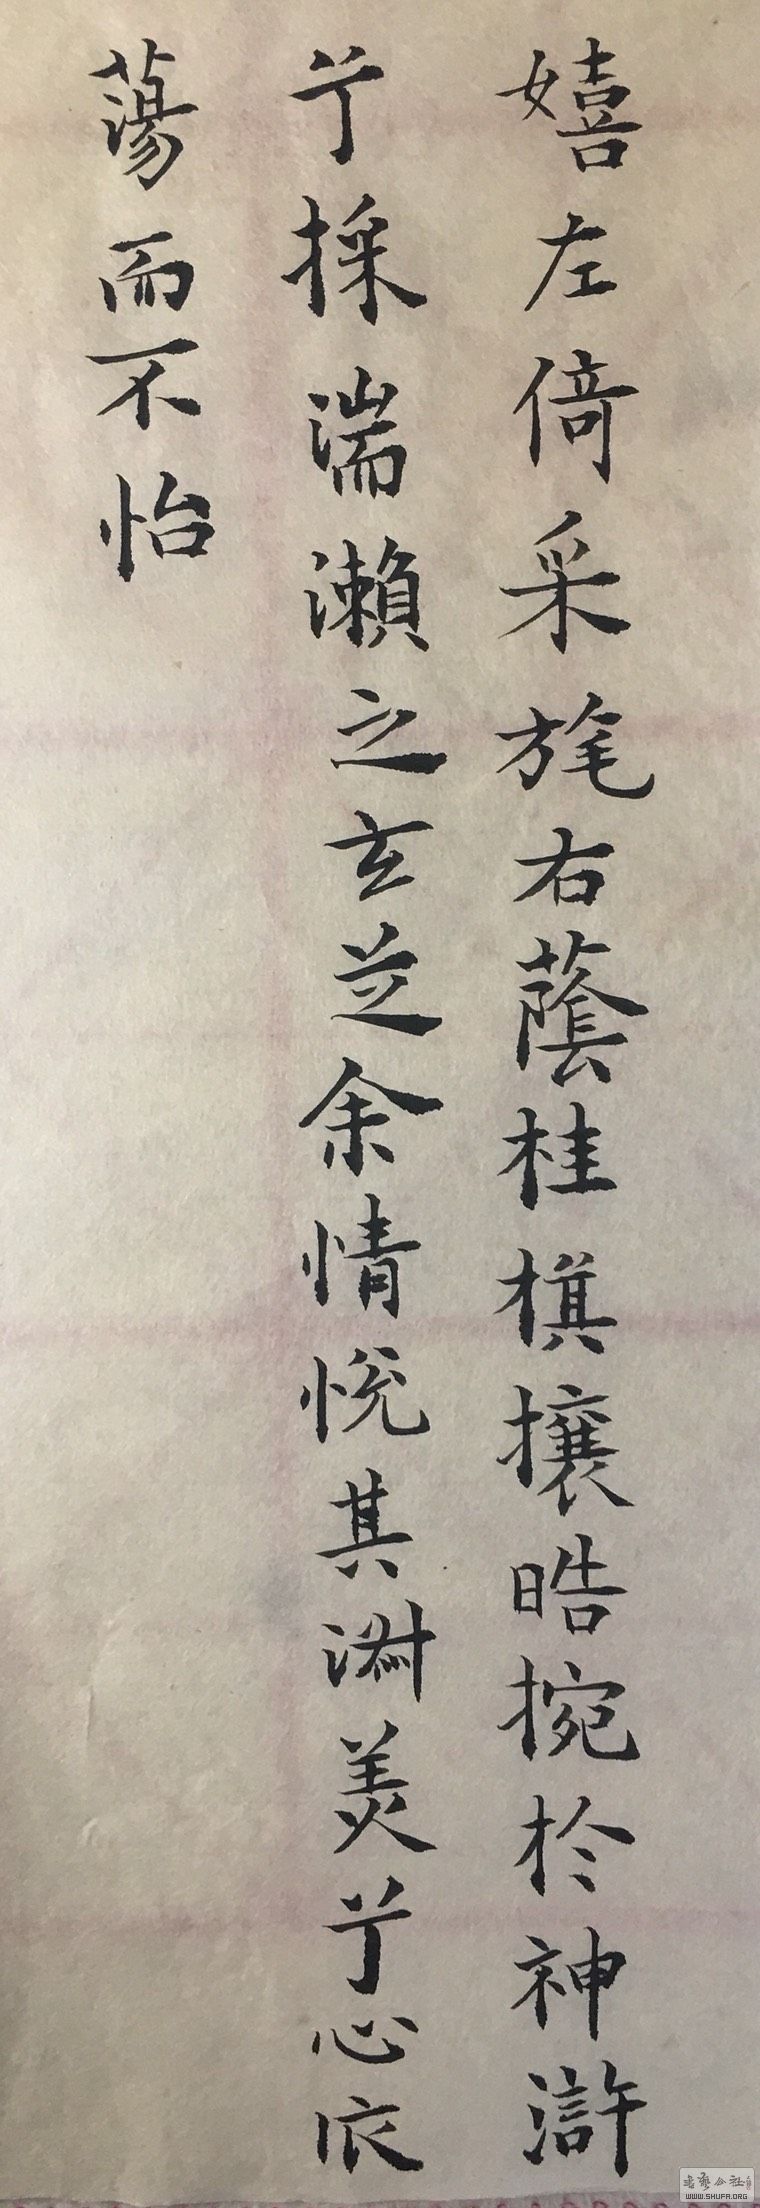 嬉左倚采旄右蔭桂旗攘晧捥於神滸
兮採湍瀨之玄芝余情悅其淑美兮心
蕩而不怡
書藝公社
WWW.SHUFA.ORG